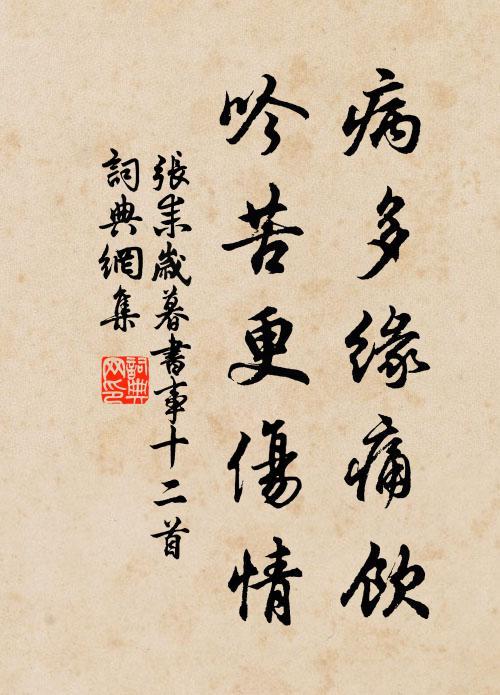 病多緣痛飲
吟苦更傷情
張耒歲暮書事十二首
詞典網集
詞典
网印